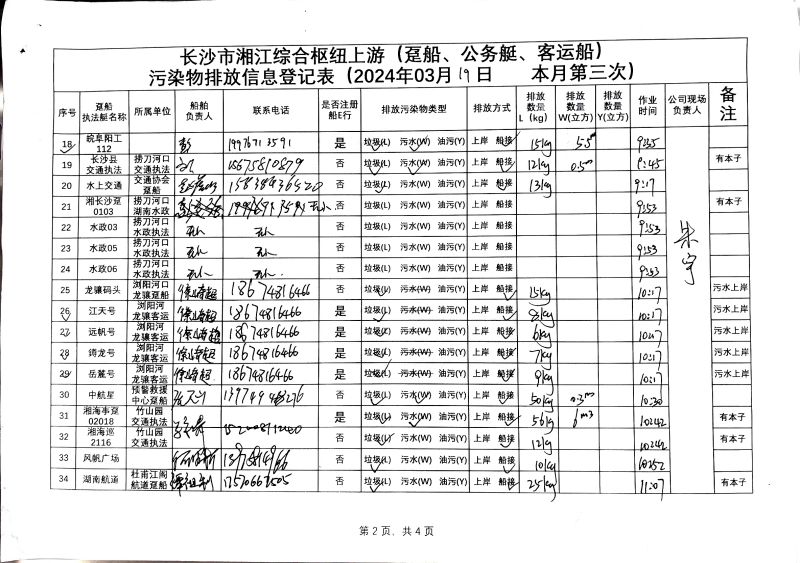 长沙市湘江综合枢纽上游（趸船、公务艇、客运船）
污染物排放信息登记表（2024年03月19日 本月第三次）
序号 趸船执法艇名称 所属单位 船舶负责人 联系电话 是否注册船E行 排放污染物类型 排放方式 排放数量L（kg） 排放数量W(立方) 排放数量Y(立方) 作业时间 公司现场负责人 备注
18 皖阜阳工112 19976713591 是 垃圾(L) 污水(W) 油污(Y) 上岸 船接 15kg 5.5m³ 9:35
19 长沙县交通执法 捞刀河口交通执法 15675810879 否 垃圾(L) 污水(W) 油污(Y) 上岸 船接 12kg 0.5m³ 9:45 有本子
20 水上交通 交通协会趸船 否 垃圾(L) 污水(W) 油污(Y) 上岸 船接 13kg 9:17
21 湘长沙趸0103 捞刀河口湖南水政 无人 否 垃圾(L) 污水(W) 油污(Y) 上岸 船接 9:53 有本子
22 水政03 捞刀河口水政执法 无人 无人 否 垃圾(L) 污水(W) 油污(Y) 上岸 船接 9:53
23 水政05 捞刀河口水政执法 无人 无人 否 垃圾(L) 污水(W) 油污(Y) 上岸 船接 9:53
24 水政06 捞刀河口水政执法 无人 无人 否 垃圾(L) 污水(W) 油污(Y) 上岸 船接 9:53
朱宇
25 龙骧码头 浏阳河口龙骧趸船 18674816466 否 垃圾(L) 污水(W) 油污(Y) 上岸 船接 15kg 10:17 污水上岸
26 江天号 浏阳河龙骧客运 18674816466 是 垃圾(L) 污水(W) 油污(Y) 上岸 船接 8kg 10:17 污水上岸
27 远帆号 浏阳河龙骧客运 18674816466 是 垃圾(L) 污水(W) 油污(Y) 上岸 船接 6kg 10:17 污水上岸
28 鹢龙号 浏阳河龙骧客运 18674816466 是 垃圾(L) 污水(W) 油污(Y) 上岸 船接 7kg 10:17 污水上岸
29 岳麓号 浏阳河龙骧客运 18674816466 是 垃圾(L) 污水(W) 油污(Y) 上岸 船接 9kg 10:17 污水上岸
30 中航星 预警救援中心趸船 否 垃圾(L) 污水(W) 油污(Y) 上岸 船接 50kg 0.3m³ 10:30
31 湘海事趸02018 竹山园交通执法 是 垃圾(L) 污水(W) 油污(Y) 上岸 船接 56kg 6m³ 10:42 有本子
32 湘海巡2116 竹山园交通执法 否 垃圾(L) 污水(W) 油污(Y) 上岸 船接 12kg 10:42
33 风帆广场 否 垃圾(L) 污水(W) 油污(Y) 上岸 船接 10kg 10:52
34 湖南航道 杜甫江阁航道趸船 17570667505 否 垃圾(L) 污水(W) 油污(Y) 上岸 船接 25kg 11:07 有本子
第 2 页、共 4 页